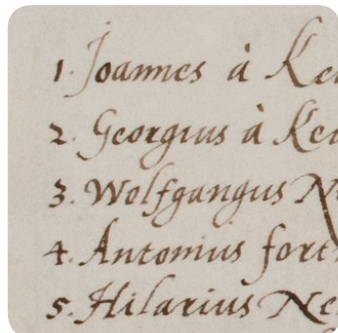 1. Joannes à Ke
2. Georgius à Ke
3. Wolfgangus N
4. Antonius fort
5. Hilarius Ne